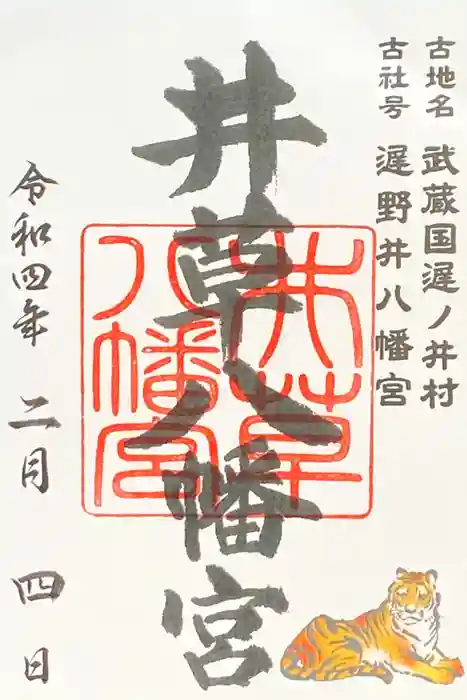 古地名 武蔵国遅ノ井村
古社号 遅野井八幡宮
井草八幡宮
井草
八幡宮
令和四年 二月 四日